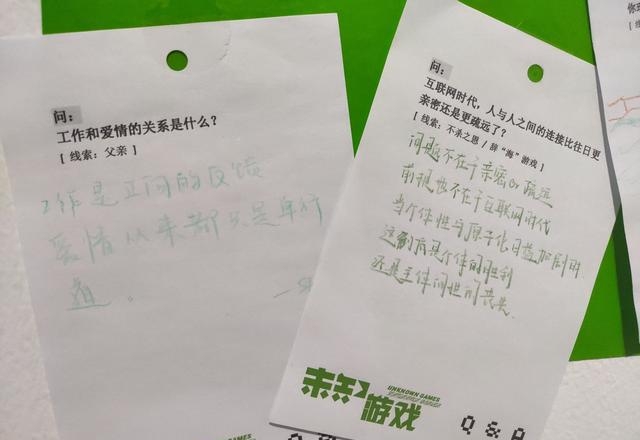 问：
工作和爱情的关系是什么？
[ 线索：父亲 ]
工作是正向的反馈
爱情从来都只是单行
道。
问：
互联网时代，人与人之间的连接比往日更
亲密还是更疏远了？
[ 线索：不杀之恩 / 辞“海”游戏 ]
问题不在于亲密or疏远
前提也不在于互联网时代
当个体性与原子化日益加剧时
这到底是个体的胜利
还是主体间性的丧失
未知
游戏
UNKNOWN GAMES
Q & A
你玩